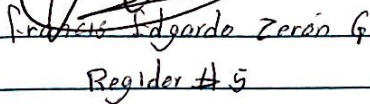 Francis Edgardo Zerón G
Regidor # 5